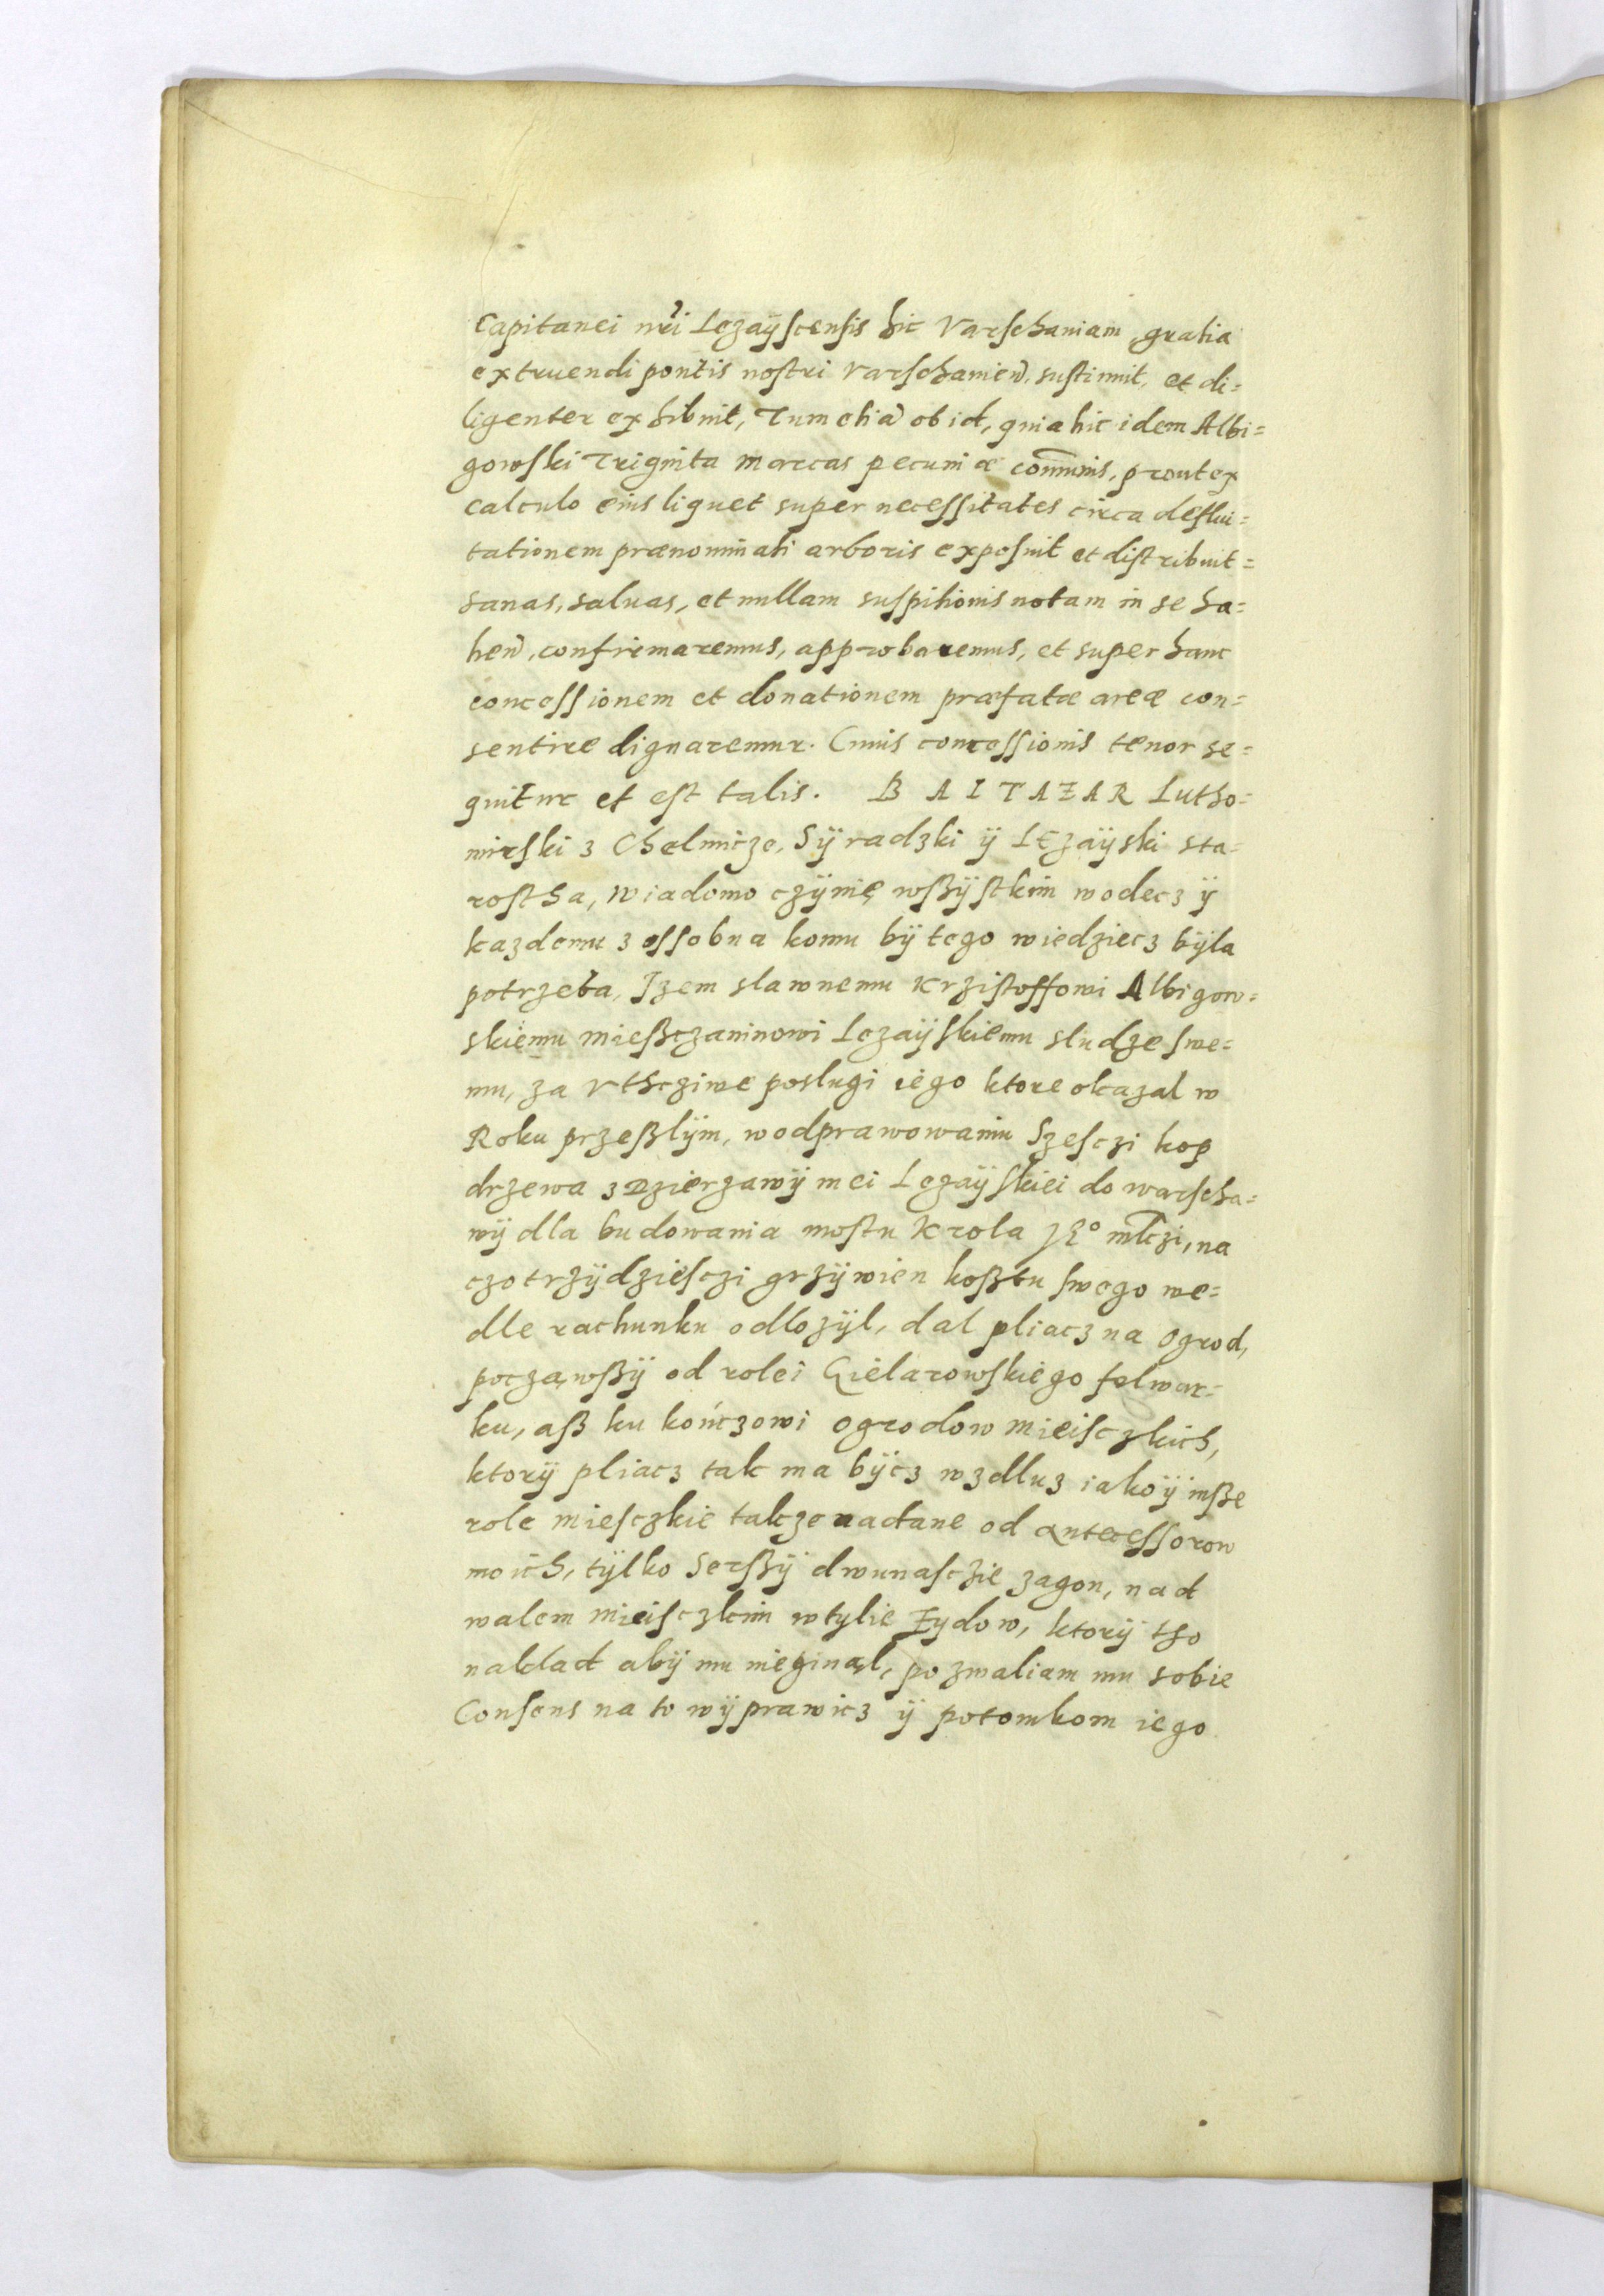 Capitanei nr̃i Lezaÿscensis hic Varschaniam, gratia
extruendi pontis nostri Varschanien̄, sustinuit, et di=
ligenter exhibuit, Tum etiã ob id, quia hic idem Albi=
gowski Triginta marcas pecuniæ com̄unis, prout ex
calculo eius liquet super necessitates circa deflui=
tationem prænominati arboris exposuit et distribuit=
sanas, saluas, et nullam suspitionis notam in se ha=
ben̄, confirmaremus, approbaremus, et super hanc
concessionem et donationem præfatæ areæ con=
sentire dignaremur. Cuius concessionis tenor se=
quitur et est talis. BALTAZAR Lutho=
mirski z Chelmicze, Sÿradzki ÿ Lezaÿski sta=
rostha, Wiadomo czÿnię wßÿstkim wodecz ÿ
kazdemu z ossobna komu bÿ tego wiedziecz bÿla
potrzeba, Izem slawnemu Krzistoffowi Albigow=
skiemu mießczaninowi Lezaÿskiemu sludze swe=
mu, za Vthcziwe poslugi iego ktore okazal w
Roku przeßlÿm, wodprawowaniu Szesczi kop
drzewa z Dzierzawÿ mei Lezaÿskiei do warscha=
wÿ dla budowania mostu Krola JE° młczi, na
czo trzÿdziesczi grzÿwien koßtu swego we=
dle rachunku odlozÿl, dal pliacz na Ogrod,
począwßÿ od rolei Gielarowskiego folwar=
ku, aß ku kończowi ogrodow mieisczkich,
ktorÿ pliacz tak ma bÿcz wzdluz iako ÿ inße
role miesczkie takze nadane od antecessorow
moich, tÿlko Serßÿ dwunasczie zagon, nad
walem mieisczkim wtylie Zydow, ktorÿ tho
naklad abÿ mu nieginął, pozwaliam mu sobie
Consens na to wÿprawicz ÿ potomkom iego